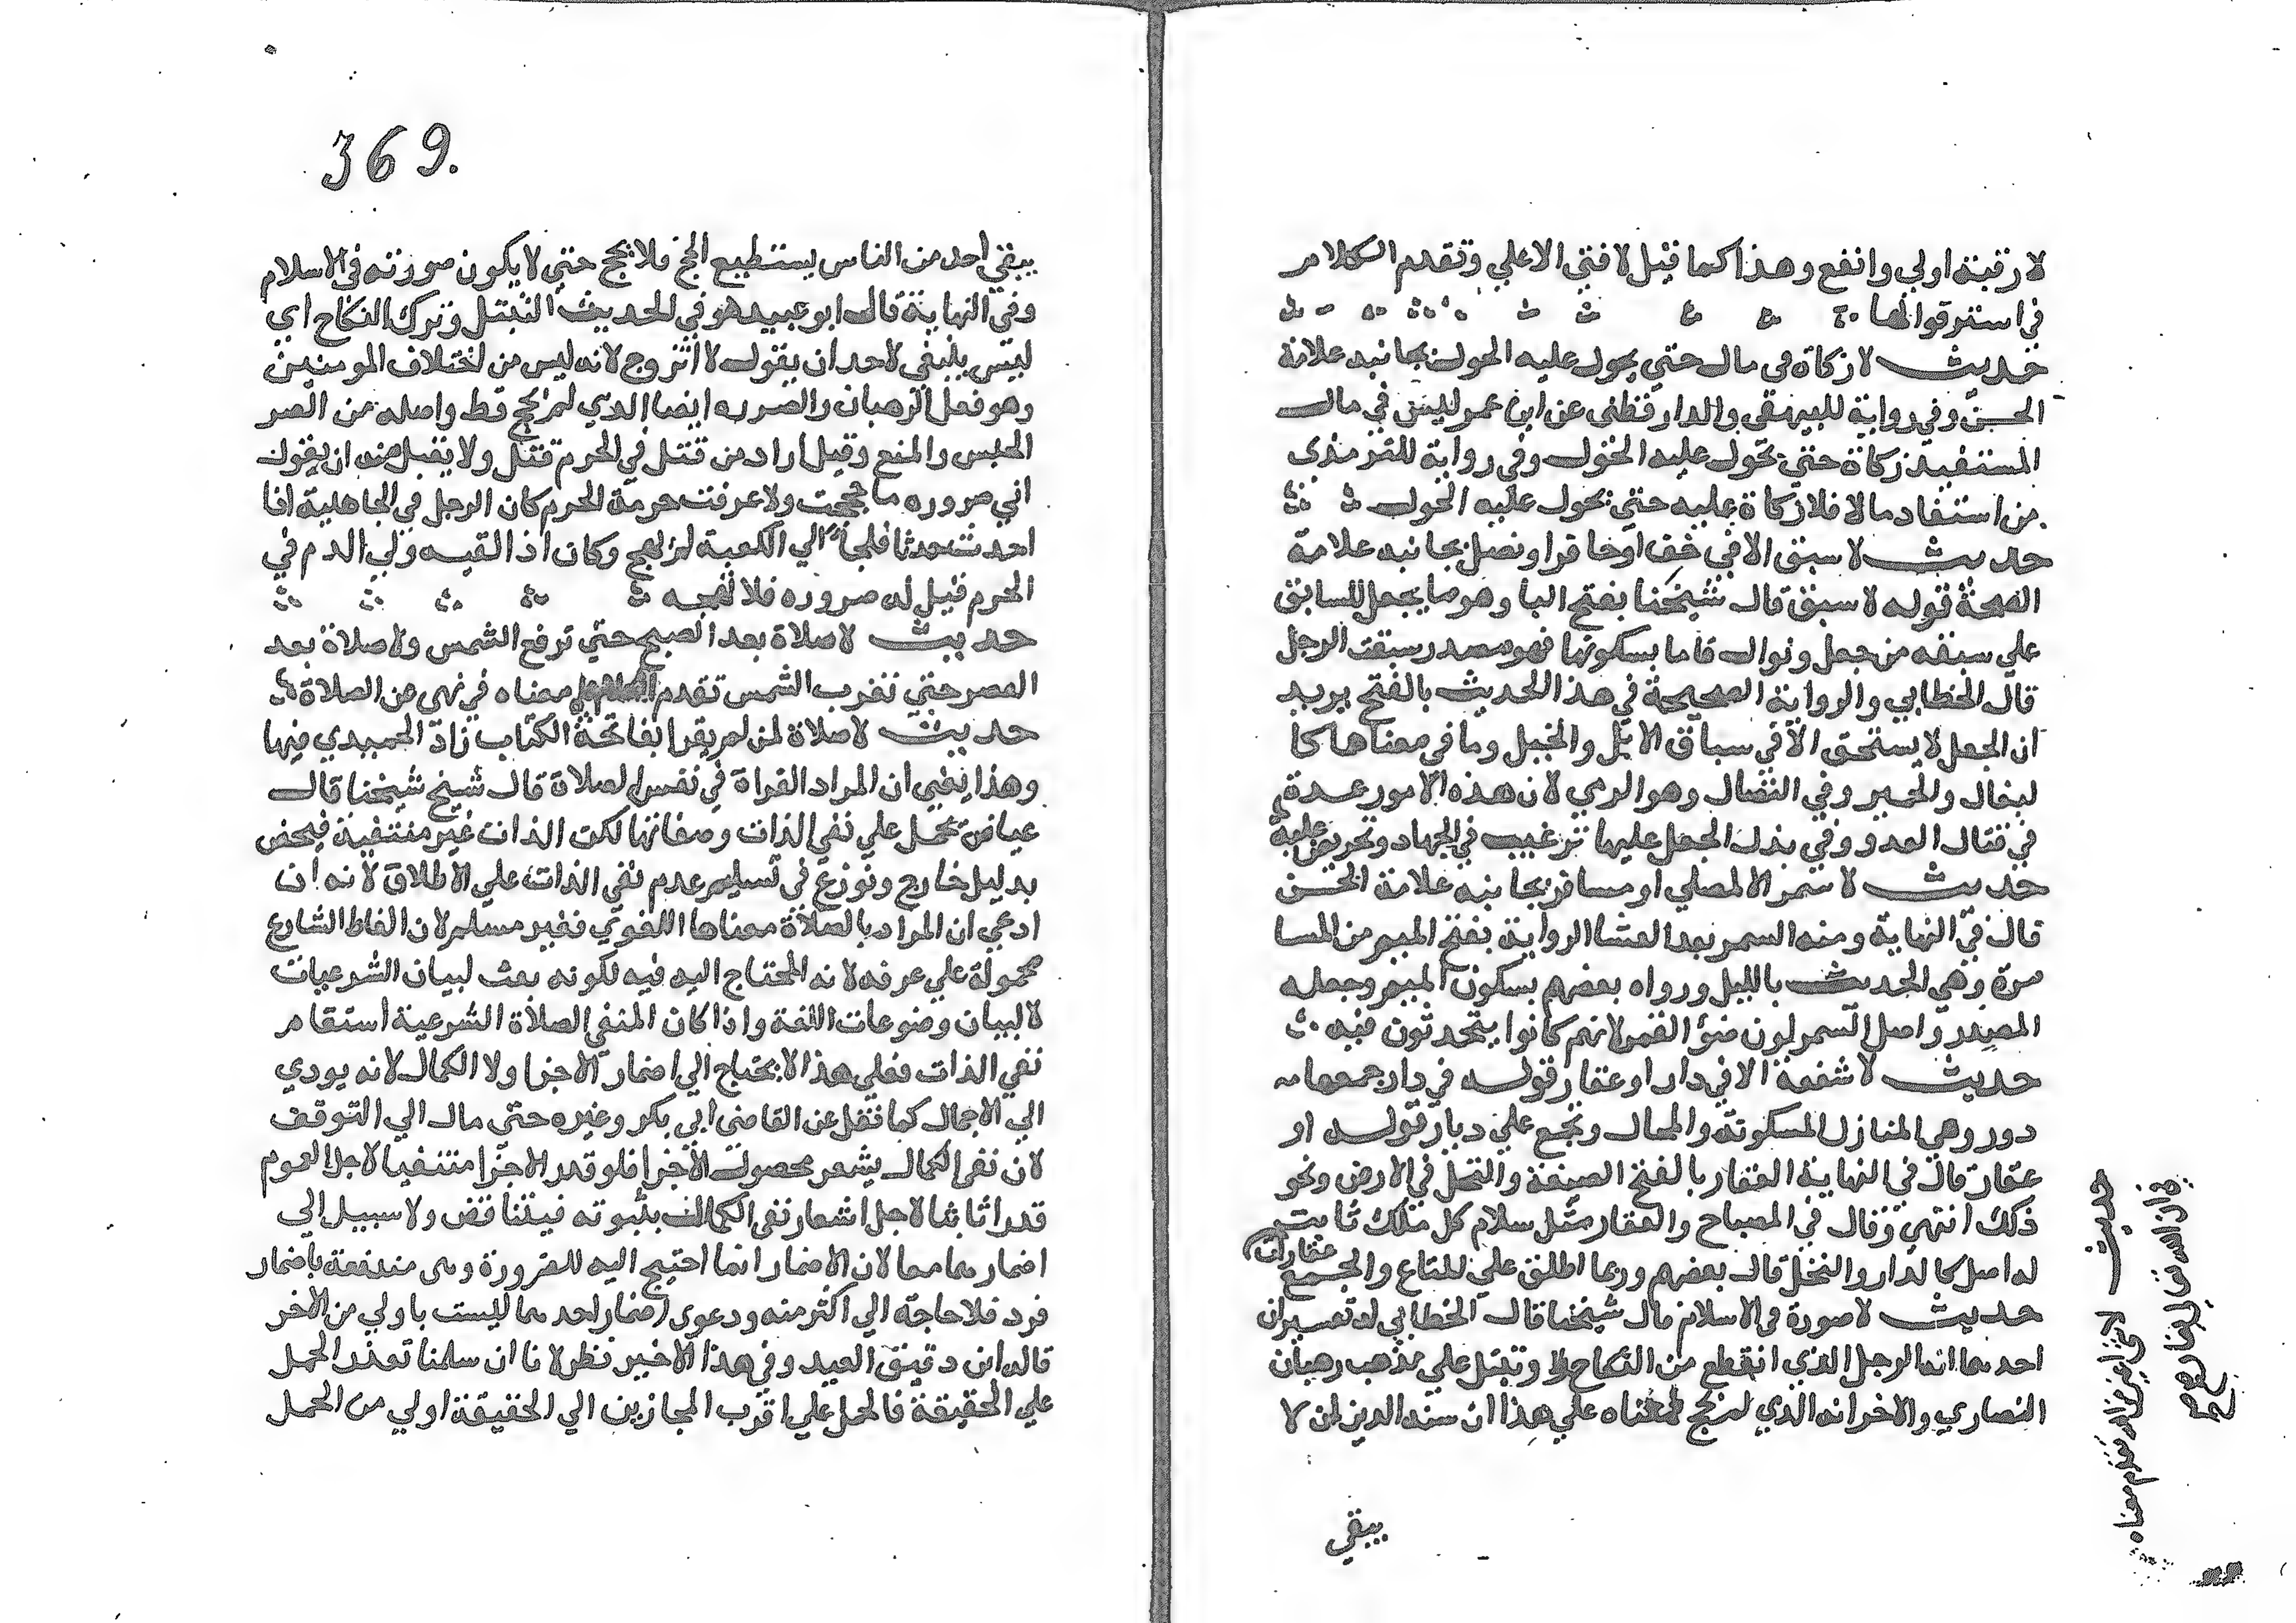 لا رقية اولي وانفع وهذا كما قيل لا فتي الا علي وتقدم الكلام
في استرقوا لها
حديث لا زكاة في مال حتي يحول عليه الحول بجانبه علامة
الحسن وفي رواية للبيهقي والدارقطني عن ابن عمر ليس في مال
المستفيد زكاة حتي يحول عليه الحول وفي رواية للترمذي
من استفاد مالا فلا زكاة عليه حتي يحول عليه الحول
حديث لا سبق الا في خف او حافر او نصل بجانبه علامة
الصحة قوله لا سبق قال شيخنا بفتح البا وهو ما يجعل للسابق
علي سبقه من جعل ونوال فاما بسكونها فهو مصدر سبقت الرجل
قال الخطابي والرواية الصحيحة في هذا الحديث بالفتح يريد
ان الجعل لا يستحق الا في سباق الابل والخيل وما في معناها كا
لبغال والحمير وفي النضال وهو الرمي لان هذه الامور عدة
في قتال العدو وفي بذل الجعل عليها ترغيب في الجهاد وتحريض عليه
حديث لا سمر الا لمصلي او مسافر بجانبه علامة الحسن
قال في النهاية ومنه السمر بعد العشا الرواية بفتح الميم من المسا
مرة وهي الحديث بالليل ورواه بعضهم بسكون الميم وجعله
المصدر واصل السمر لون ضؤ القمر لانهم كانوا يتحدثون فيه
حديث لا شفعة الا في دار او عقار قوله في دار جمعها
دور وهي المنازل المسكونة والمحال وتجمع علي ديار قوله او
عقار قال في النهاية العقار بالفتح الضيعة والنخل في الارض ونحو
ذلك انتهي وقال في المصباح والعقار مثل سلام كل ملك ثابت
له اصل كالدار والنخل قال بعضهم وربما اطلق علي المتاع والجمع عقارات
حديث لا صرورة في الاسلام قال شيخنا قال الخطابي له تفسيران
احدهما انه الرجل الذي انقطع من النكاح وتبتل علي مذهب رهبان
النصاري والاخر انه الذي لم يحج فمعناه علي هذا ان سنة الدين ان لا
يبقي
حديث
369.
يبقي احد من الناس يستطيع الحج فلا يحج حتي لا يكون صرورته في الاسلام
وفي النهاية قال ابو عبيد هو في الحديث التبتل وترك النكاح اي
ليس ينبغي لاحد ان يقول لا اتزوج لانه ليس من اختلاف المومنين
وهو فعل الرهبان والصروره ايضا الذي لم يحج قط واصله من الصر
الحبس والمنع وقيل اراد من قتل في الحرم قتل ولا يقبل منه ان يقول
اني صروره ما حججت ولا عرفت حرمة الحرم كان الرجل في الجاهلية اذا
احدث حدثا فلجا الي الكعبة لم يهج وكان اذا لقيه ولي الدم في
الحرم قيل له صروره فلا تهجه
حديث لا صلاة بعد الصبح حتي ترفع الشمس ولا صلاة بعد
العصر حتي تغرب الشمس تقدم معناه في نهي عن الصلاة
حديث لا صلاة لمن لم يقرا بفاتحة الكتاب زاد الحميدي فيها
وهذا يفي ان المراد القراة في نفس الصلاة قال شيخ شيخنا قال
عياض يحمل علي نفي الذات وصفاتها لكن الذات غير منتفية فيخص
بدليل خارج ونوزع في تسليم عدم نفي الذات علي الاطلاق لانه ان
ادعي ان المراد بالصلاة معناها اللغوي فغير مسلم لان الفاظ الشارع
محمولة علي عرفه لانه المحتاج اليه فيه لكونه بعث لبيان الشرعيات
لا لبيان وضوعات اللغة واذا كان المنفي الصلاة الشرعية استقام
نفي الذات فعلي هذا لا يحتاج الي اضمار الاجزا ولا الكمال لانه يودي
الي الاجمال كما نقل عن القاضي ابي بكر وغيره حتي مال الي التوقف
لان نفي الكمال يشعر بحصول الاجزا فلو قدر الاجزا منتفيا لاجل العموم
قدر ثابتا لاجل اشعار نفي الكمال بثبوته فيتناقض ولا سبيل الي
اضمارهما معا لان الاضمار انما احتيج اليه للضرورة وهي مندفعة باضمار
فرد فلا حاجة الي اكثر منه ودعوي اضمار احدهما ليست باولي من الاخر
قاله ابن دقيق العيد وفي هذا الاخير نظر لانا ان سلمنا تعذر الحمل
علي الحقيقة فالحمل علي اقرب المجازين الي الحقيقة اولي من الحمل